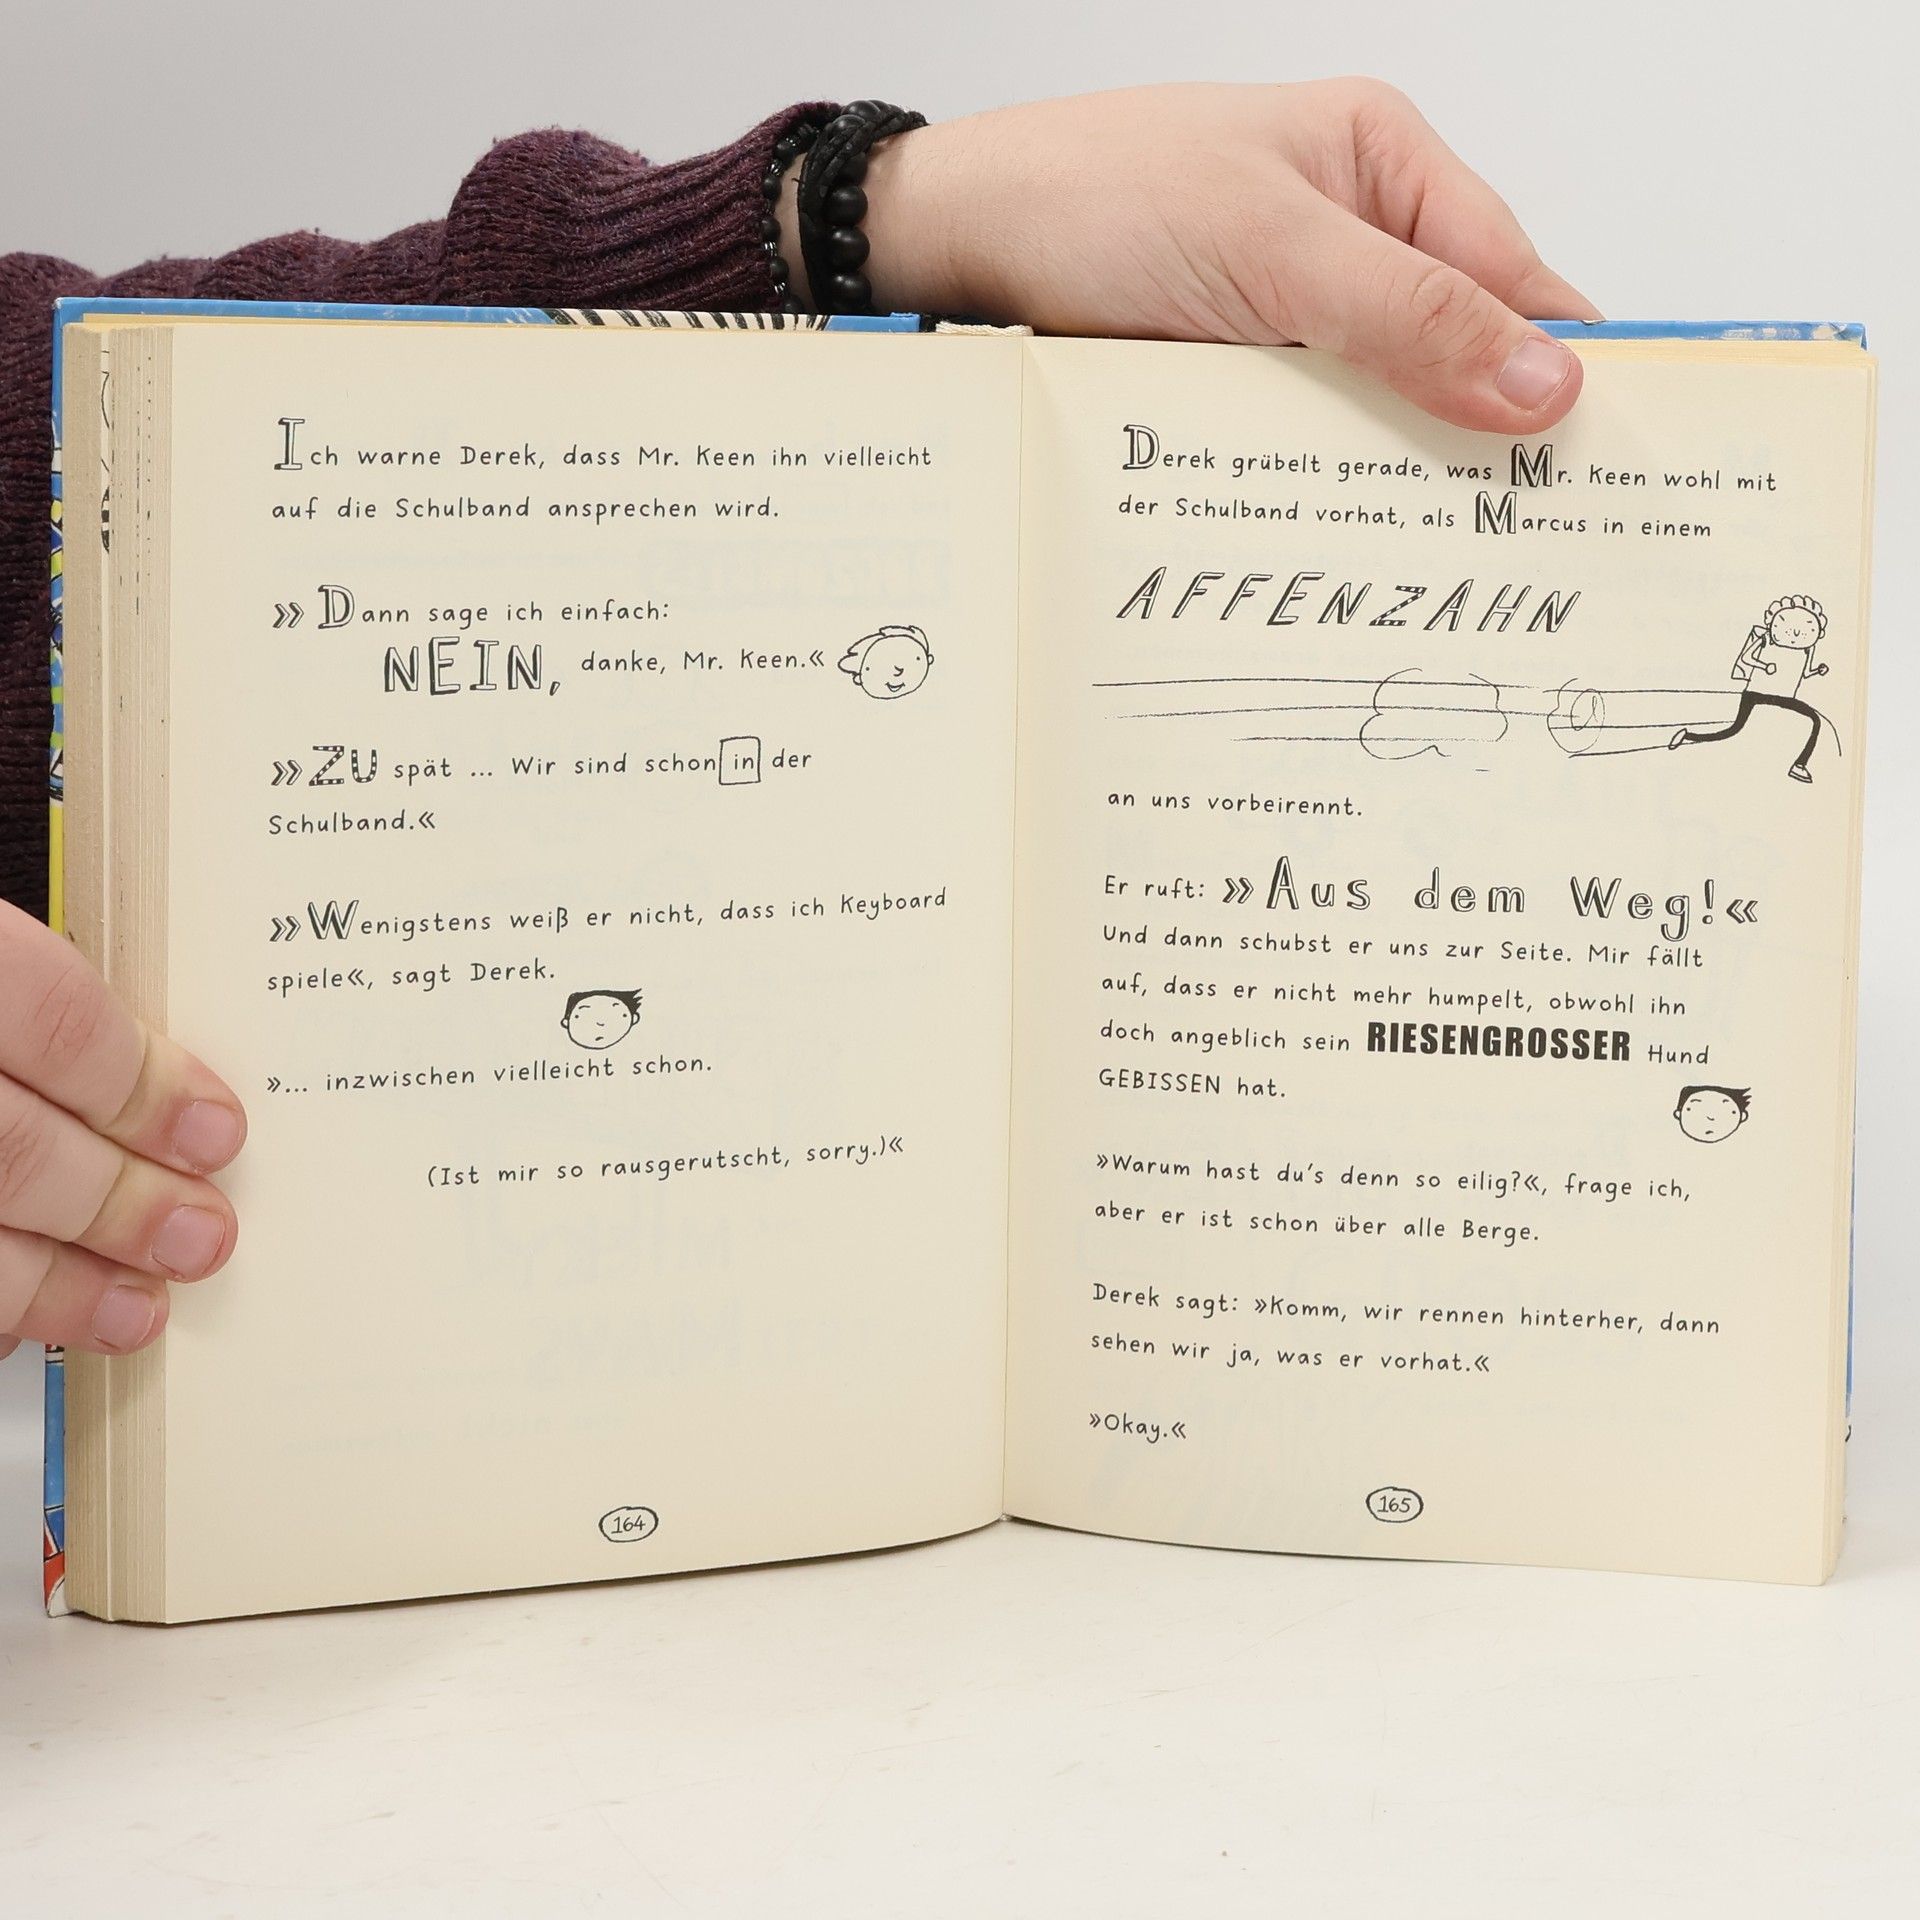 Ich warne Derek, dass Mr. Keen ihn vielleicht
auf die Schulband ansprechen wird.
»Dann sage ich einfach:
NEIN, danke, Mr. Keen.«
»ZU spät ... Wir sind schon in der
Schulband.«
»Wenigstens weiß er nicht, dass ich Keyboard
spiele«, sagt Derek.
»... inzwischen vielleicht schon.
(Ist mir so rausgerutscht, sorry.)«
164
Derek grübelt gerade, was Mr. Keen wohl mit
der Schulband vorhat, als Marcus in einem
AFFENZAHN
an uns vorbeirennt.
Er ruft: »Aus dem Weg!«
Und dann schubst er uns zur Seite. Mir fällt
auf, dass er nicht mehr humpelt, obwohl ihn
doch angeblich sein RIESENGROSSER Hund
GEBISSEN hat.
»Warum hast du's denn so eilig?«, frage ich,
aber er ist schon über alle Berge.
Derek sagt: »Komm, wir rennen hinterher, dann
sehen wir ja, was er vorhat.«
»Okay.«
165